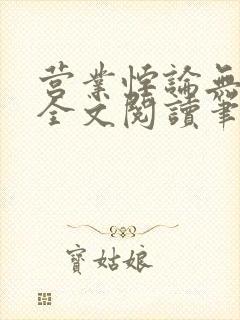 营業悖論無
全文閱讀筆
寶姑娘